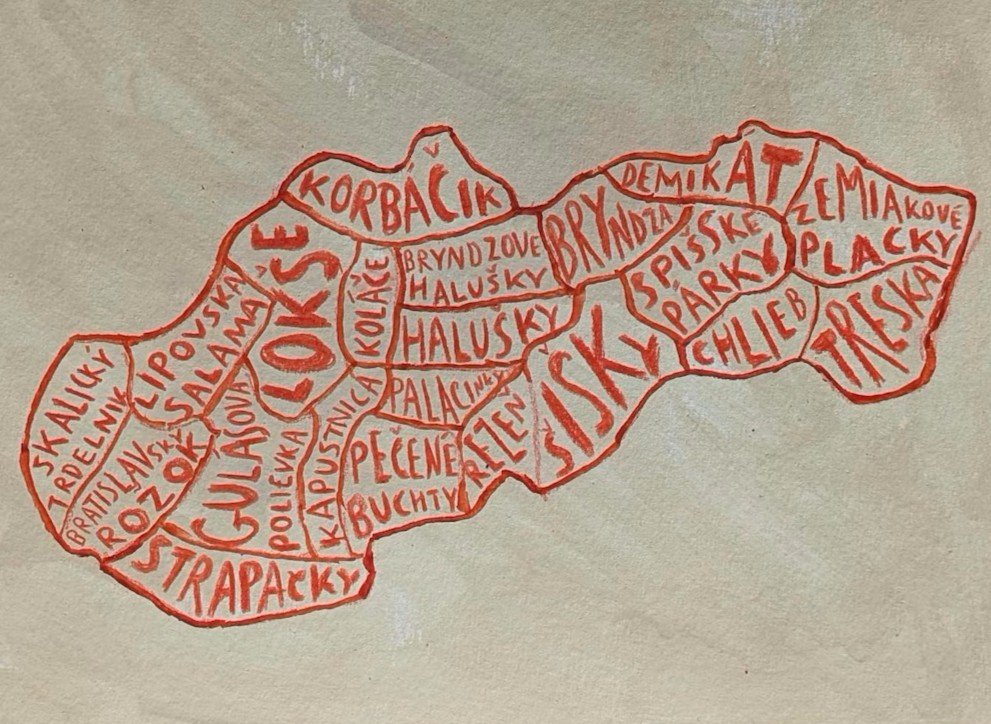 KORBÁČIK
DEMIKÁT
ZEMIAKOVÉ
PLACKY
BRYNDZA
BRYNDZOVÉ
HALUŠKY
SPIŠSKÉ
PÁRKY
LOKŠE
KOLÁČE
HALUŠKY
ŠIŠKY
CHLIEB
TRESKA
LIPOVSKÁ
SALÁMA
SKALICKÝ
TRDELNÍK
PALACINKY
BRATISLAVSKÝ
ROŽOK
GUĽÁŠOVÁ
POLIEVKA
KAPUSTNICA
PEČENÉ
BUCHTY
REZEŇ
STRAPAČKY